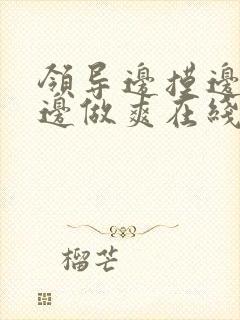 领导邊摸邊
邊做爽在綫
榴芒